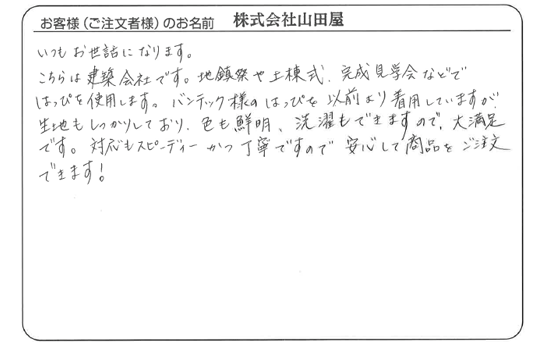 お客様（ご注文者様）のお名前 株式会社山田屋
いつもお世話になります。
こちらは建築会社です。地鎮祭や上棟式、完成見学会などで
はっぴを使用します。バンテック様のはっぴを以前より着用していますが、
生地もしっかりしており、色も鮮明、洗濯もできますので、大満足
です。対応もスピーディーかつ丁寧ですので安心して商品をご注文
できます！